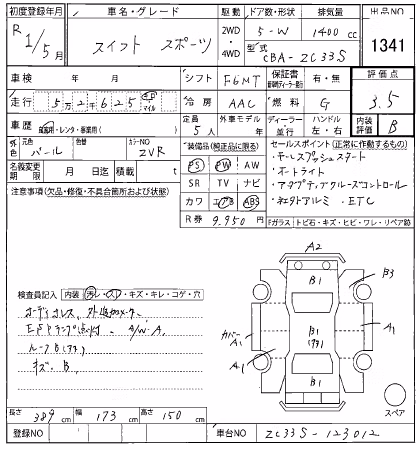 初度登録年月 車名・グレード 駆動 ドア数・形状 排気量 出品NO
R 1/5月 スイフト スポーツ 2WD・4WD 5-W 1400cc 1341
型式 CBA-ZC33S
車検 年 月 シフト F6MT 保証書 有・無 評価点
走行 5万2千625 km マイル 冷房 AAC 燃料 G 3.5
車歴 自家用・レンタ・事業用( ) 定員 5人 外車モデル 年 ディーラー 並行 ハンドル 左・右 内装 B
外色 元色 パール 色替 カラーNO ZVR 装備品(純正品に限る) セールスポイント(正常に作動するもの)
名義変更期限 月 日迄 積載 t PS PW AW ・キーレスプッシュスタート
SR TV ナビ ・オートライト
注意事項(欠品・修復・不具合箇所および状態) カワ エアB ABS ・アダプティブクルーズコントロール
・社外アルミ ・ETC
R券 9.950円 Fガラス トビ石・キズ・ヒビ・ワレ・リペア跡
A2
B1 B3
検査員記入 内装 汚レ・スレ・キズ・キレ・コゲ・穴
オーディオレス, 外
ESPランプ点灯 A/W・A
ルーフB
キズ, B
カバー A1 B1 A1
A1
B1
スペア
長さ 389cm 幅 173cm 高さ 150cm
登録NO 車台NO ZC33S-123012